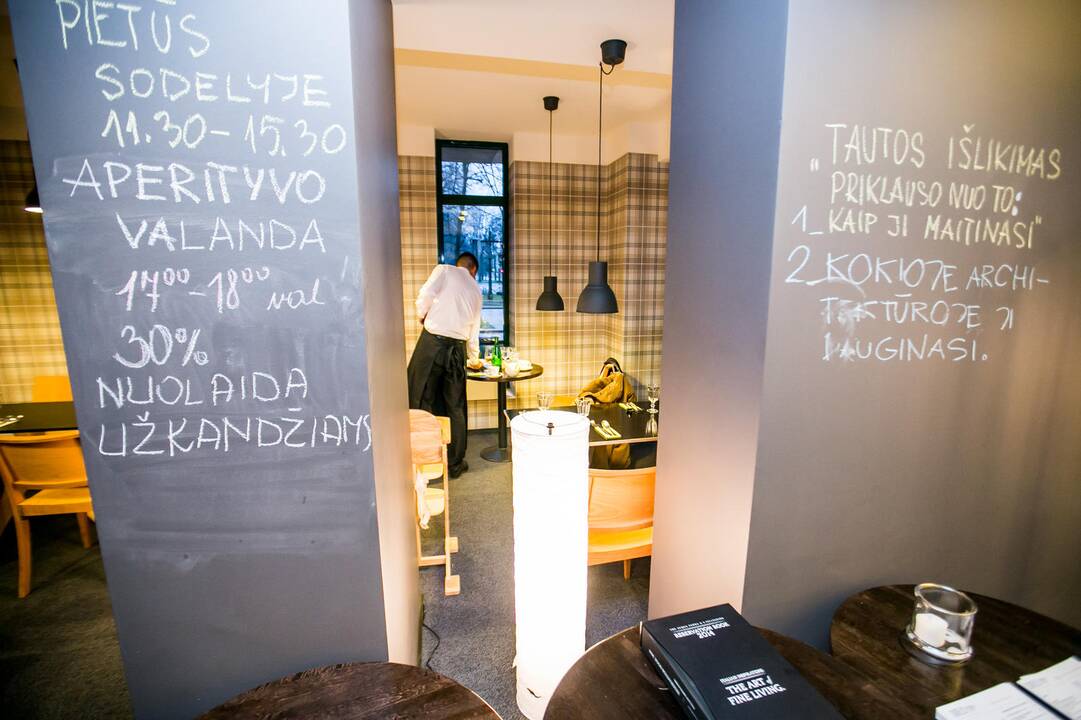 PIETŪS
SODELYJE
11.30-15.30
APERITYVO
VALANDA
17⁰⁰-18⁰⁰ val
30%
NUOLAIDA
UŽKANDŽIAMS
TAUTOS IŠLIKIMAS
„PRIKLAUSO NUO TO:
1_KAIP JI MAITINASI"
2_KOKIOJE ARCHI-
TEKTŪROJE JI
AUGINASI.
THE ART OF
FINE LIVING